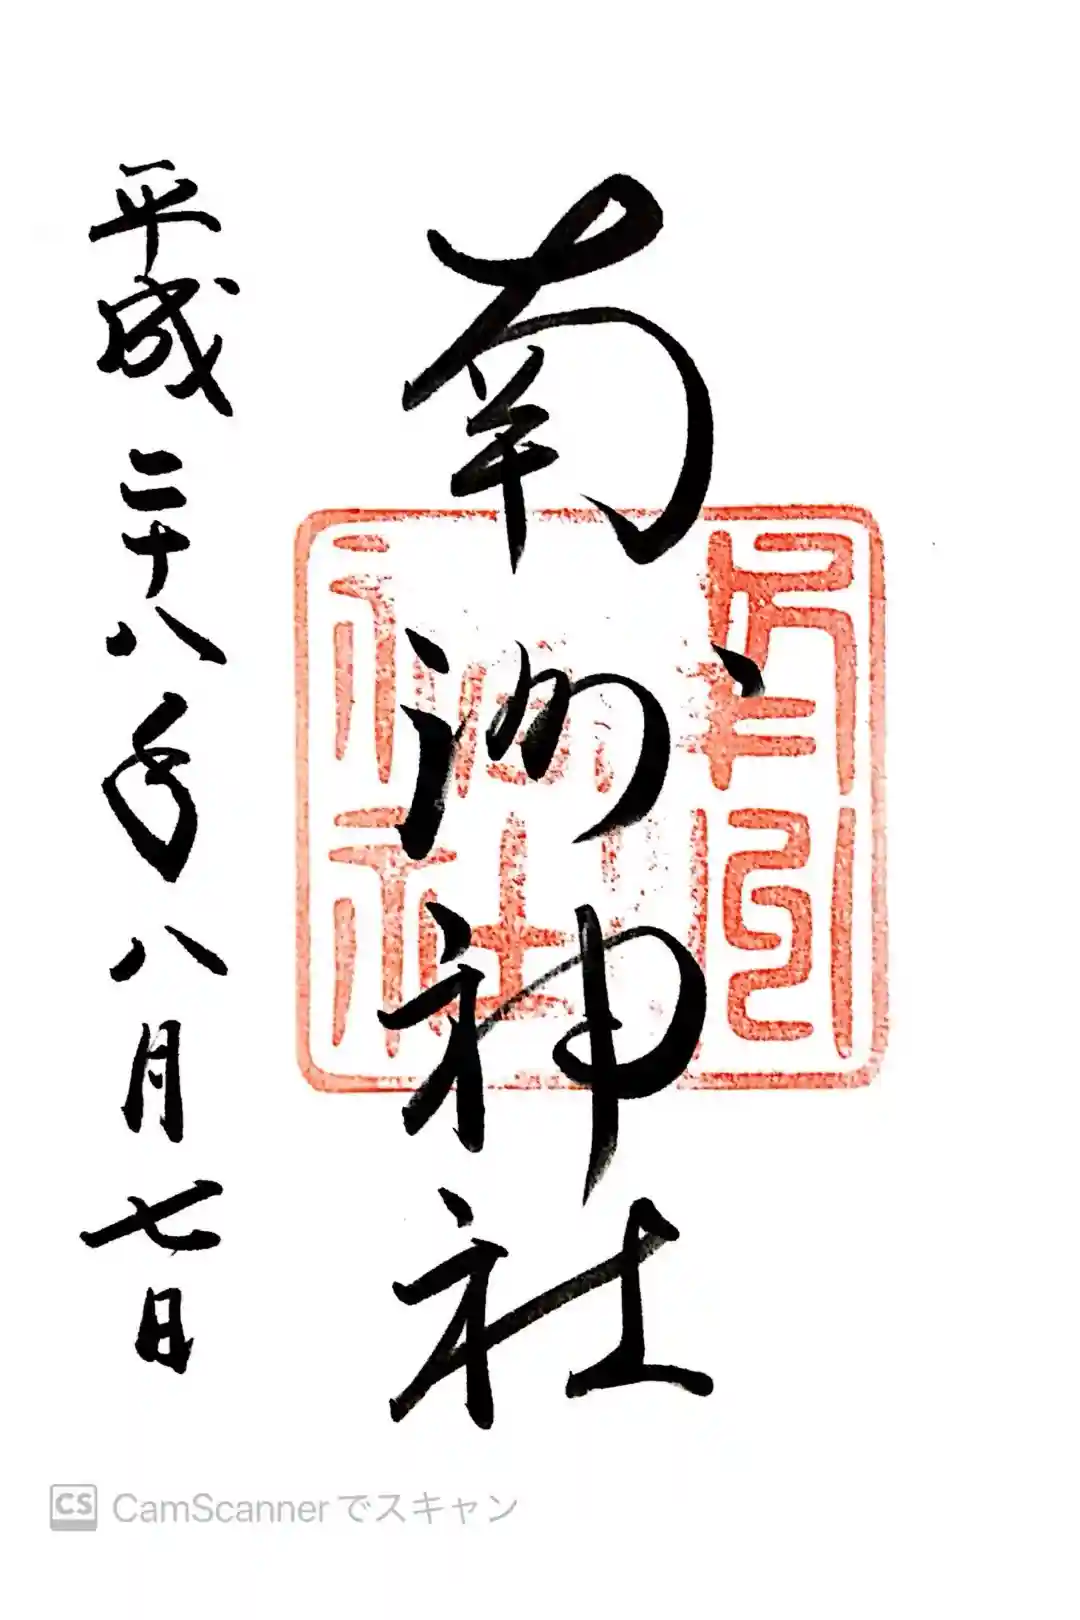 南洲神社
平成二十八年八月七日
CS CamScannerでスキャン